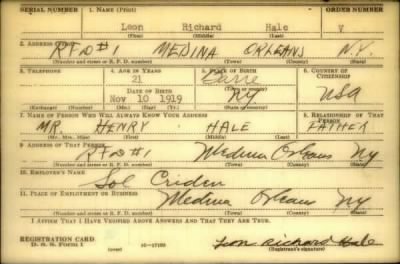 SERIAL NUMBER 1. NAME (Print) ORDER NUMBER
Leon Richard Hale V
(First) (Middle) (Last)
2. ADDRESS (Print)
RFD #1 MEDINA ORLEANS N.Y.
(Number and street or R. F. D. number) (Town) (County) (State)
3. TELEPHONE 4. AGE IN YEARS 5. PLACE OF BIRTH 6. COUNTRY OF CITIZENSHIP
21
DATE OF BIRTH (Town or county)
Nov 10 1919 NY USA
(Exchange) (Number) (Mo.) (Day) (Yr.) (State or country)
7. NAME OF PERSON WHO WILL ALWAYS KNOW YOUR ADDRESS 8. RELATIONSHIP OF THAT PERSON
MR HENRY HALE FATHER
(Mr., Mrs., Miss) (First) (Middle) (Last)
9. ADDRESS OF THAT PERSON
RFD #1 Medina Orleans NY
(Number and street or R. F. D. number) (Town) (County) (State)
10. EMPLOYER'S NAME
Sol Criden
11. PLACE OF EMPLOYMENT OR BUSINESS
Medina Orleans NY
(Number and street or R. F. D. number) (Town) (County) (State)
I AFFIRM THAT I HAVE VERIFIED ABOVE ANSWERS AND THAT THEY ARE TRUE.
REGISTRATION CARD
D. S. S. FORM 1 Leon Richard Hale
(Registrant's signature)